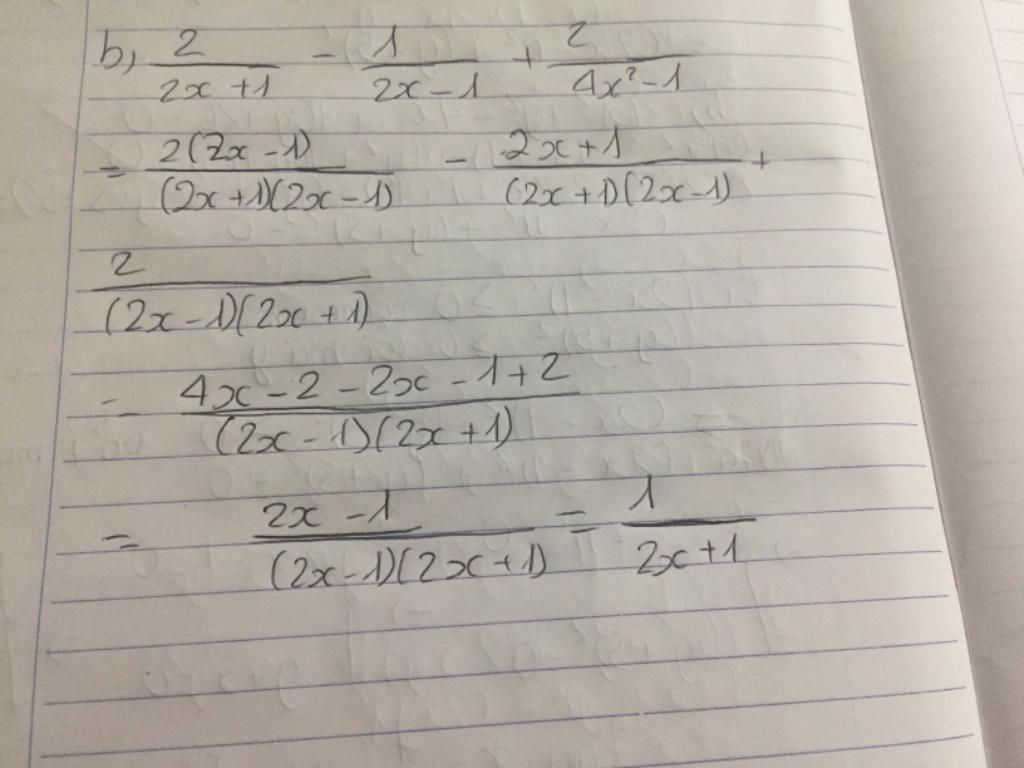 b, 2/(2x+1) - 1/(2x-1) + 2/(4x²-1)
= 2(2x-1)/((2x+1)(2x-1)) - (2x+1)/((2x+1)(2x-1)) +
2/((2x-1)(2x+1))
= (4x-2-2x-1+2)/((2x-1)(2x+1))
= (2x-1)/((2x-1)(2x+1)) = 1/(2x+1)